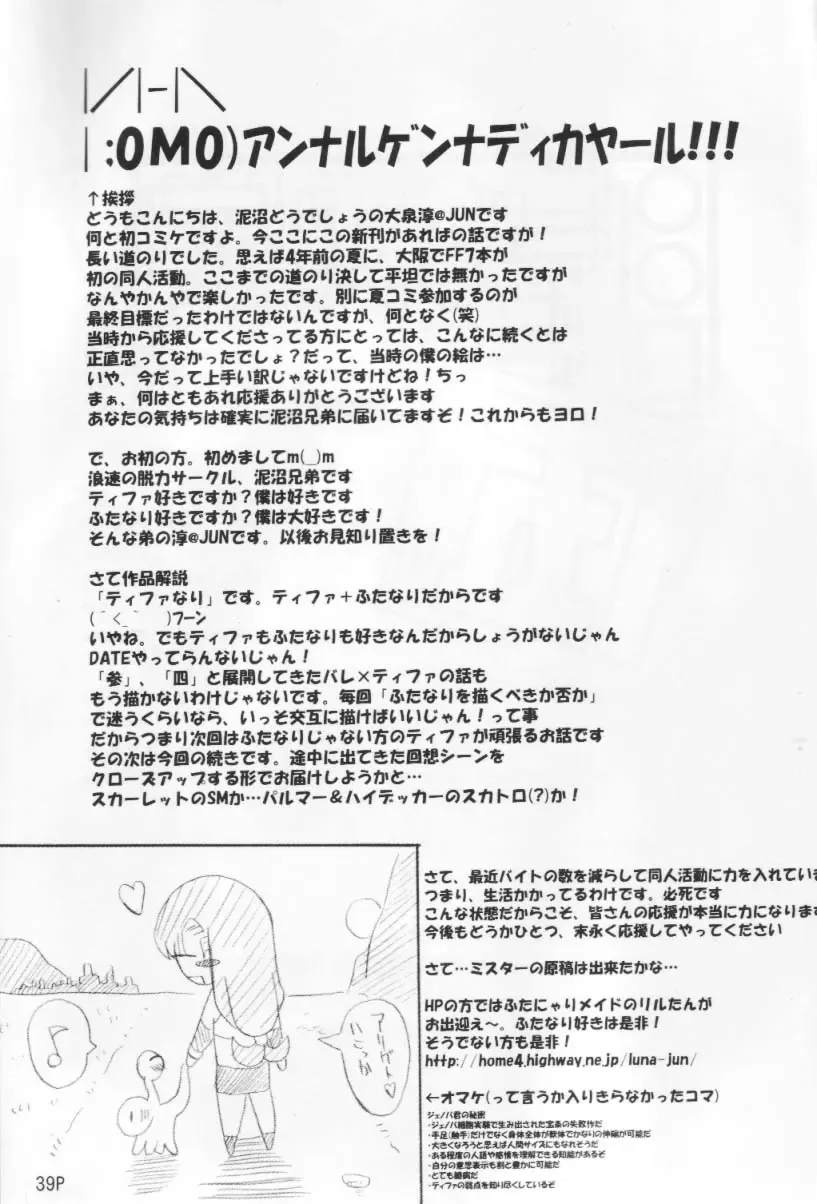 |／|-|＼
| :OMO)アンナルゲンナディカヤール!!!
↑挨拶
どうもこんにちは、泥沼どうでしょうの大泉淳@JUNです
何と初コミケですよ。今ここにこの新刊があればの話ですが!
長い道のりでした。思えば4年前の夏に、大阪でFF7本が
初の同人活動。ここまでの道のり決して平坦では無かったですが
なんやかんやで楽しかったです。別に夏コミ参加するのが
最終目標だったわけではないんですが、何となく(笑)
当時から応援してくださってる方にとっては、こんなに続くとは
正直思ってなかったでしょ?だって、当時の僕の絵は…
いや、今だって上手い訳じゃないですけどね!ちっ
まぁ、何はともあれ応援ありがとうございます
あなたの気持ちは確実に泥沼兄弟に届いてますぞ!これからもヨロ!
で、お初の方。初めましてm(_)m
浪速の脱力サークル、泥沼兄弟です
ティファ好きですか?僕は好きです
ふたなり好きですか?僕は大好きです!
そんな弟の淳@JUNです。以後お見知り置きを!
さて作品解説
「ティファなり」です。ティファ+ふたなりだからです
(´<_` )フーン
いやね。でもティファもふたなりも好きなんだからしょうがないじゃん
DATEやってらんないじゃん!
「参」、「四」と展開してきたバレ×ティファの話も
もう描かないわけじゃないです。毎回「ふたなりを描くべきか否か」
で迷うくらいなら、いっそ交互に描けばいいじゃん!って事
だからつまり次回はふたなりじゃない方のティファが頑張るお話です
その次は今回の続きです。途中に出てきた回想シーンを
クローズアップする形でお届けしようかと…
スカーレットのSMか…パルマー&ハイデッカーのスカトロ(?)か!
さて、最近バイトの数を減らして同人活動に力を入れていま
つまり、生活かかってるわけです。必死です
こんな状態だからこそ、皆さんの応援が本当に力になります
今後もどうかひとつ、末永く応援してやってください
さて…ミスターの原稿は出来たかな…
HPの方ではふたにゃりメイドのリルたんが
お出迎え〜。ふたなり好きは是非!
そうでない方も是非!
http://home4.highway.ne.jp/luna-jun/
←オマケ(って言うか入りきらなかったコマ)
ジェノバ君の秘密
・ジェノバ細胞実験で生み出された宝条の失敗作だ
・手足(触手)だけでなく身体全体が軟体でかなりの伸縮が可能だ
・大きくなろうと思えば人間サイズにもなれそうだ
・ある程度の人語や感情を理解できる知能があるぞ
・自分の意思表示も割と豊かに可能だ
・とても臆病だ
・ティファの弱点を知り尽くしているぞ
♪
39P